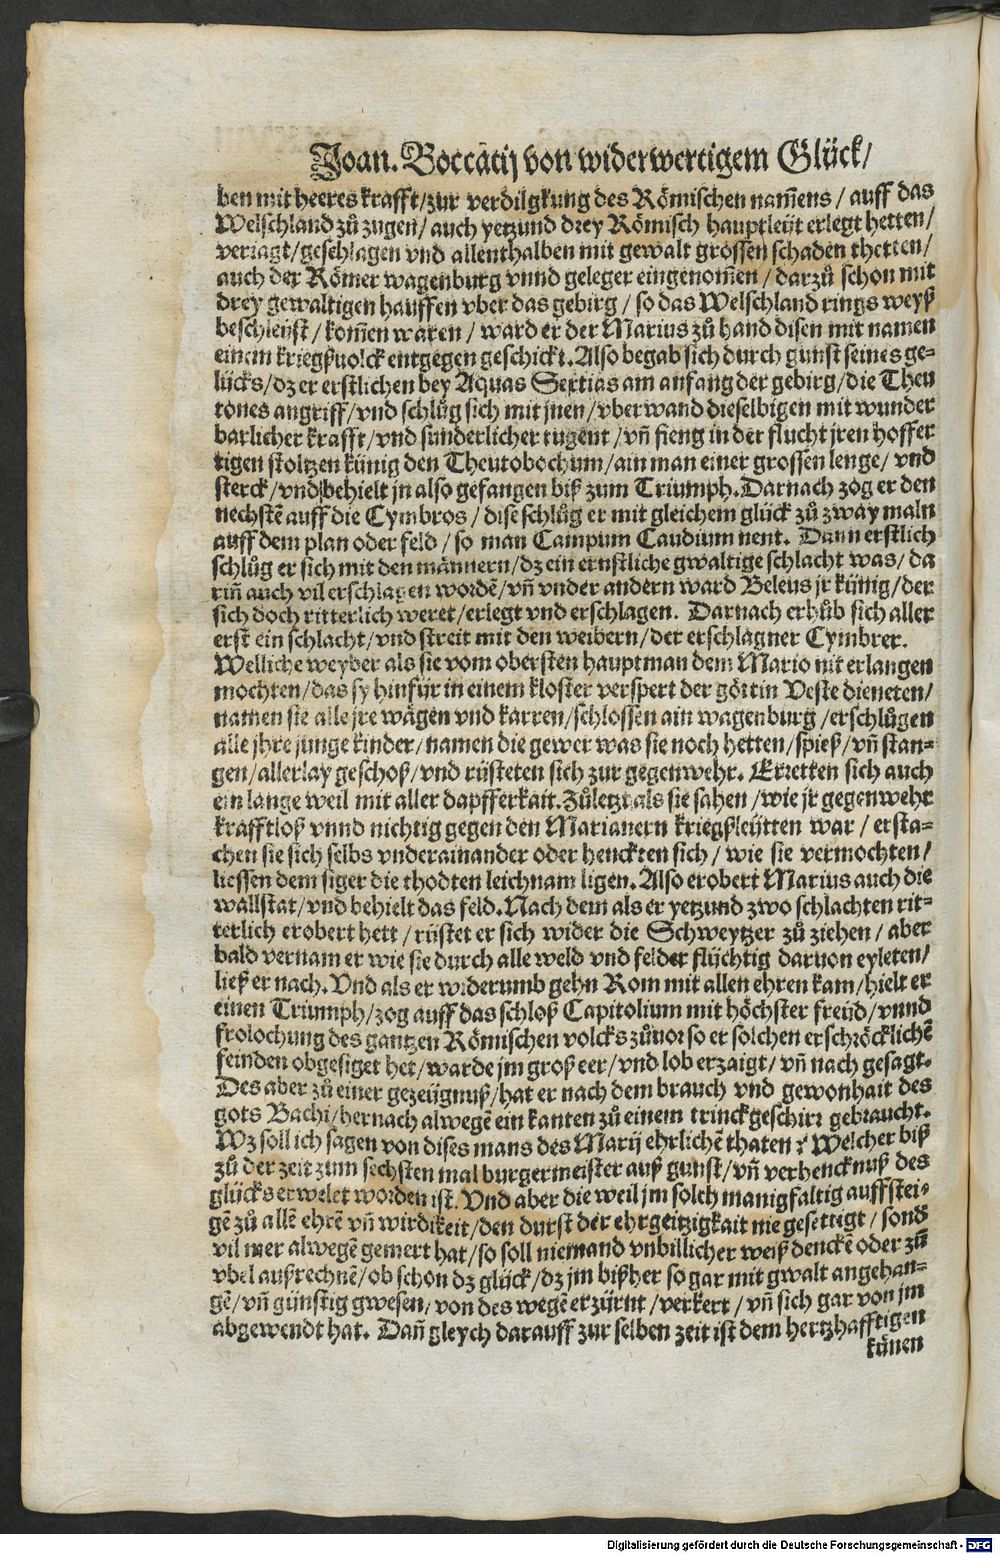 Joan. Boccatij von widerwertigem Glück/
ben mit heeres krafft/zur verdilgkung des Römischen nam̃ens/ auff das
Welschland zů zugen/auch yetzund drey Römisch hauptleüt erlegt hetten/
veriagt/geschlagen vnd allenthalben mit gewalt grossen schaden thetten/
auch der Römer wagenburg vnnd geleger eingenom̃en/darzů schon mit
drey gewaltigen hauffen vber das gebirg/so das Welschland rings weyß
beschleüst/kom̃en waren/ward er der Marius zů hand disen mit namen
einem kriegßuolck entgegen geschickt. Also begab sich durch gunst seines ge-
lücks/dz er erstlichen bey Aquas Sextias am anfang der gebirg/die Theu
tones angriff/vnd schlůg sich mit jnen/vberwand dieselbigen mit wunder
barlicher krafft/vnd sunderlicher tugent/vñ fieng in der flucht jren hoffer
tigen stoltzen künig den Theutobochum/ain man einer grossen lenge/ vnd
sterck/vnd behielt jn also gefangen biß zum Triumph. Darnach zog er den
nechstẽ auff die Cymbros/dise schlůg er mit gleichem glück zů zway maln
auff dem plan oder feld/so man Campum Caudium nent. Dann erstlich
schlůg er sich mit den männern/dz ein ernstliche gwaltige schlacht was/da
riñ auch vil erschlagen wordẽ/vñ vnder andern ward Beleus jr künig/der
sich doch ritterlich weret/erlegt vnd erschlagen. Darnach erhůb sich aller
erst ein schlacht/vnd streit mit den weibern/der erschlagner Cymbrer.
Welliche weyber als sie vom obersten hauptman dem Mario nit erlangen
mochten/das sy hinfür in einem kloster verspert der göttin Veste dieneten/
namen sie alle jre wägen vnd karren/schlossen ain wagenburg/erschlůgen
alle jhre junge kinder/namen die gewer was sie noch hetten/spieß/vñ stan-
gen/allerlay geschoß/vnd rüsteten sich zur gegenwehr. Erretten sich auch
ein lange weil mit aller dapfferkait. Zůletzt als sie sahen/wie jr gegenwehr
krafftloß vnnd nichtig gegen den Marianern kriegßleütten war/ersta-
chen sie sich selbs vnderainander oder henckten sich/wie sie vermochten/
liessen dem siger die thodten leichnam ligen. Also erobert Marius auch die
wallstat/vnd behielt das feld. Nach dem als er yetzund zwo schlachten rit-
terlich erobert hett/rüstet er sich wider die Schweytzer zů ziehen/aber
bald vernam er wie sie durch alle weld vnd felder flüchtig daruon eyleten/
ließ er nach. Vnd als er widerumb gehn Rom mit allen ehren kam/hielt er
einen Triumph/zog auff das schloß Capitolium mit höchster freüd/vnnd
frolochung des gantzen Römischen volcks zůuor so er solchen erschröcklichẽ
feinden obgesiget het/warde jm groß eer/vnd lob erzaigt/vñ nach gesagt.
Des aber zů einer gezeügnuß/hat er nach dem brauch vnd gewonhait des
gots Bachi/hernach alwegẽ ein kanten zů einem trinckgeschirr gebraucht.
Wz soll ich sagen von dises mans des Marij ehrlichẽ thaten? Welcher biß
zů der zeit zum sechsten mal burgermeister auß gunst/vñ verhencknuß des
glücks erwelet worden ist. Vnd aber die weil jm solch manigfaltig auffstei-
gẽ zů allẽ ehrẽ vñ wirdikeit/den durst der ehrgeitzigkait nie gesettigt/sond
vil mer alwegẽ gemert hat/so soll niemand vnbillicher weiß denckẽ oder zů
vbel außrechnẽ/ob schon dz glück/dz jm bißher so gar mit gwalt angehan-
gẽ/vñ günstig gwesen/von des wegẽ erzürnt/verkert/vñ sich gar von jm
abgewendt hat. Dañ gleych darauff zur selben zeit ist dem hertzhafftigen
künen
Digitalisierung gefördert durch die Deutsche Forschungsgemeinschaft - DFG